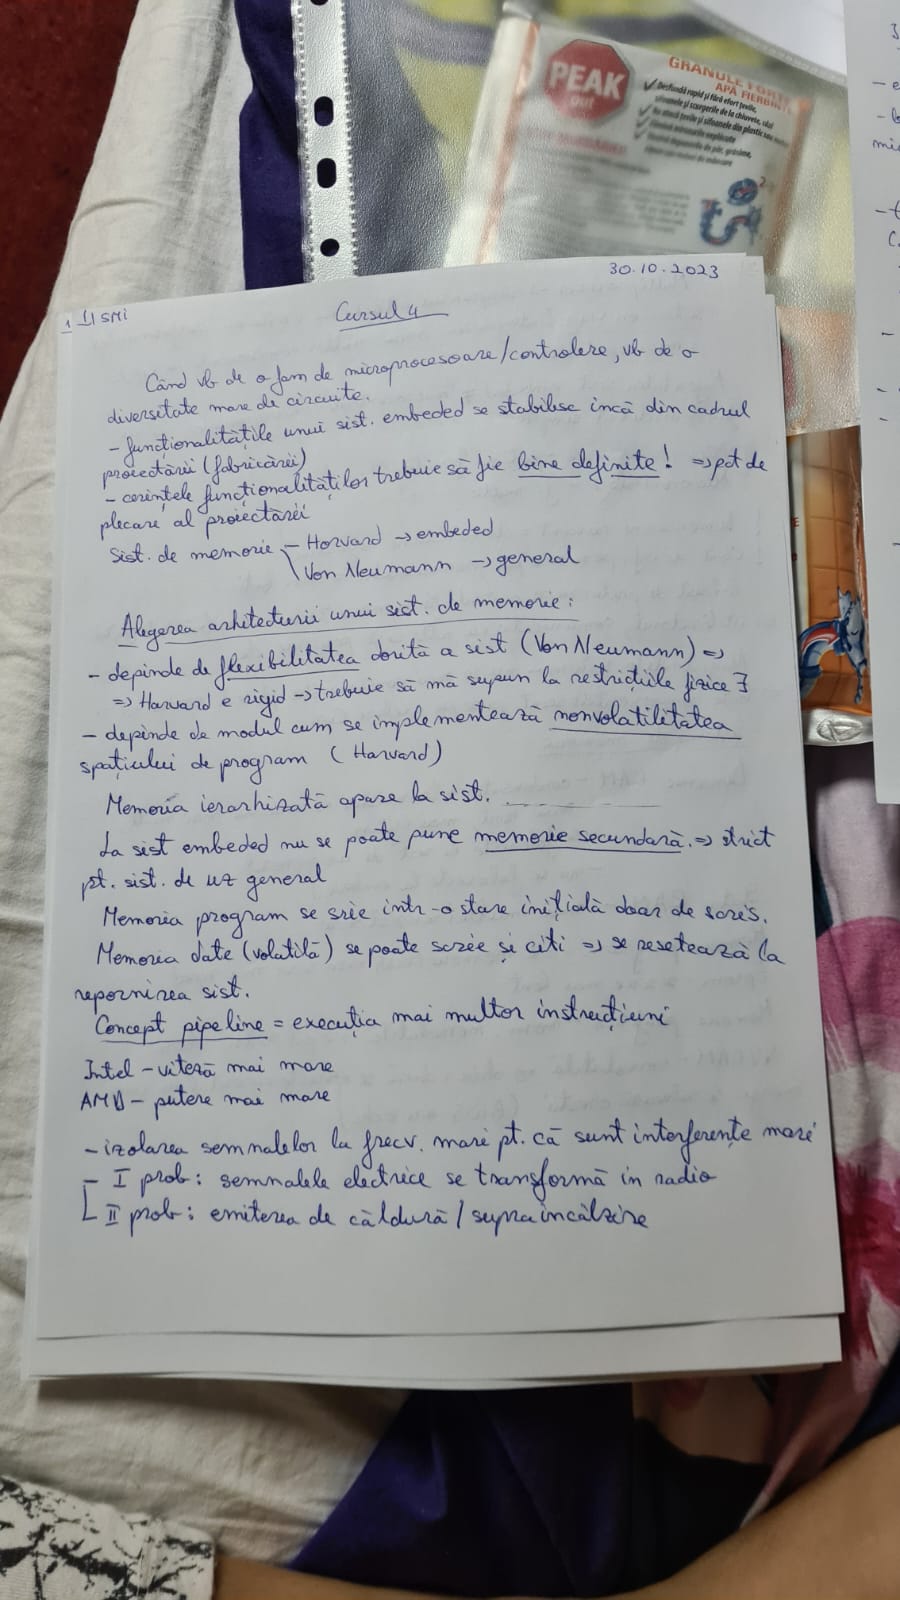 PEAK
out
GRANULE FORTE
APĂ FIERBINTE
Desfundă rapid și fără efort țevile,
sifoanele și scurgerile de la chiuvete, căzi
30.10.2023
1 II SMI
Cursul 4
Când vb de o fam de microprocesoare/controlere, vb de o
diversitate mare de circuite.
- funcționalitățile unui sist. embeded se stabilesc încă din cadrul
proiectării (fabricării)
- cerințele funcționalităților trebuie să fie bine definite! => pct de
plecare al proiectării
Sist. de memorie - Harvard -> embeded
\ Von Neumann -> general
Alegerea arhitecturii unui sist. de memorie:
- depinde de flexibilitatea dorită a sist (Von Neumann) =>
=> Harvard e rigid -> trebuie să mă supun la restricțiile fizice ∃
- depinde de modul cum se implementează nonvolatilitatea
spațiului de program (Harvard)
Memoria ierarhizată apare la sist.
La sist embeded nu se poate pune memorie secundară. => strict
pt. sist. de uz general
Memoria program se scrie într-o stare inițială doar de scris.
Memorea date (volatilă) se poate scrie și citi => se resetează la
repornirea sist.
Concept pipeline = execuția mai multor instrucțiuni
Intel - viteză mai mare
AMD - putere mai mare
- izolarea semnalelor la frecv. mari pt. că sunt interferențe mari
- I prob: semnalele electrice se transformă în radio
II prob: emiterea de căldură / supraîncălzire